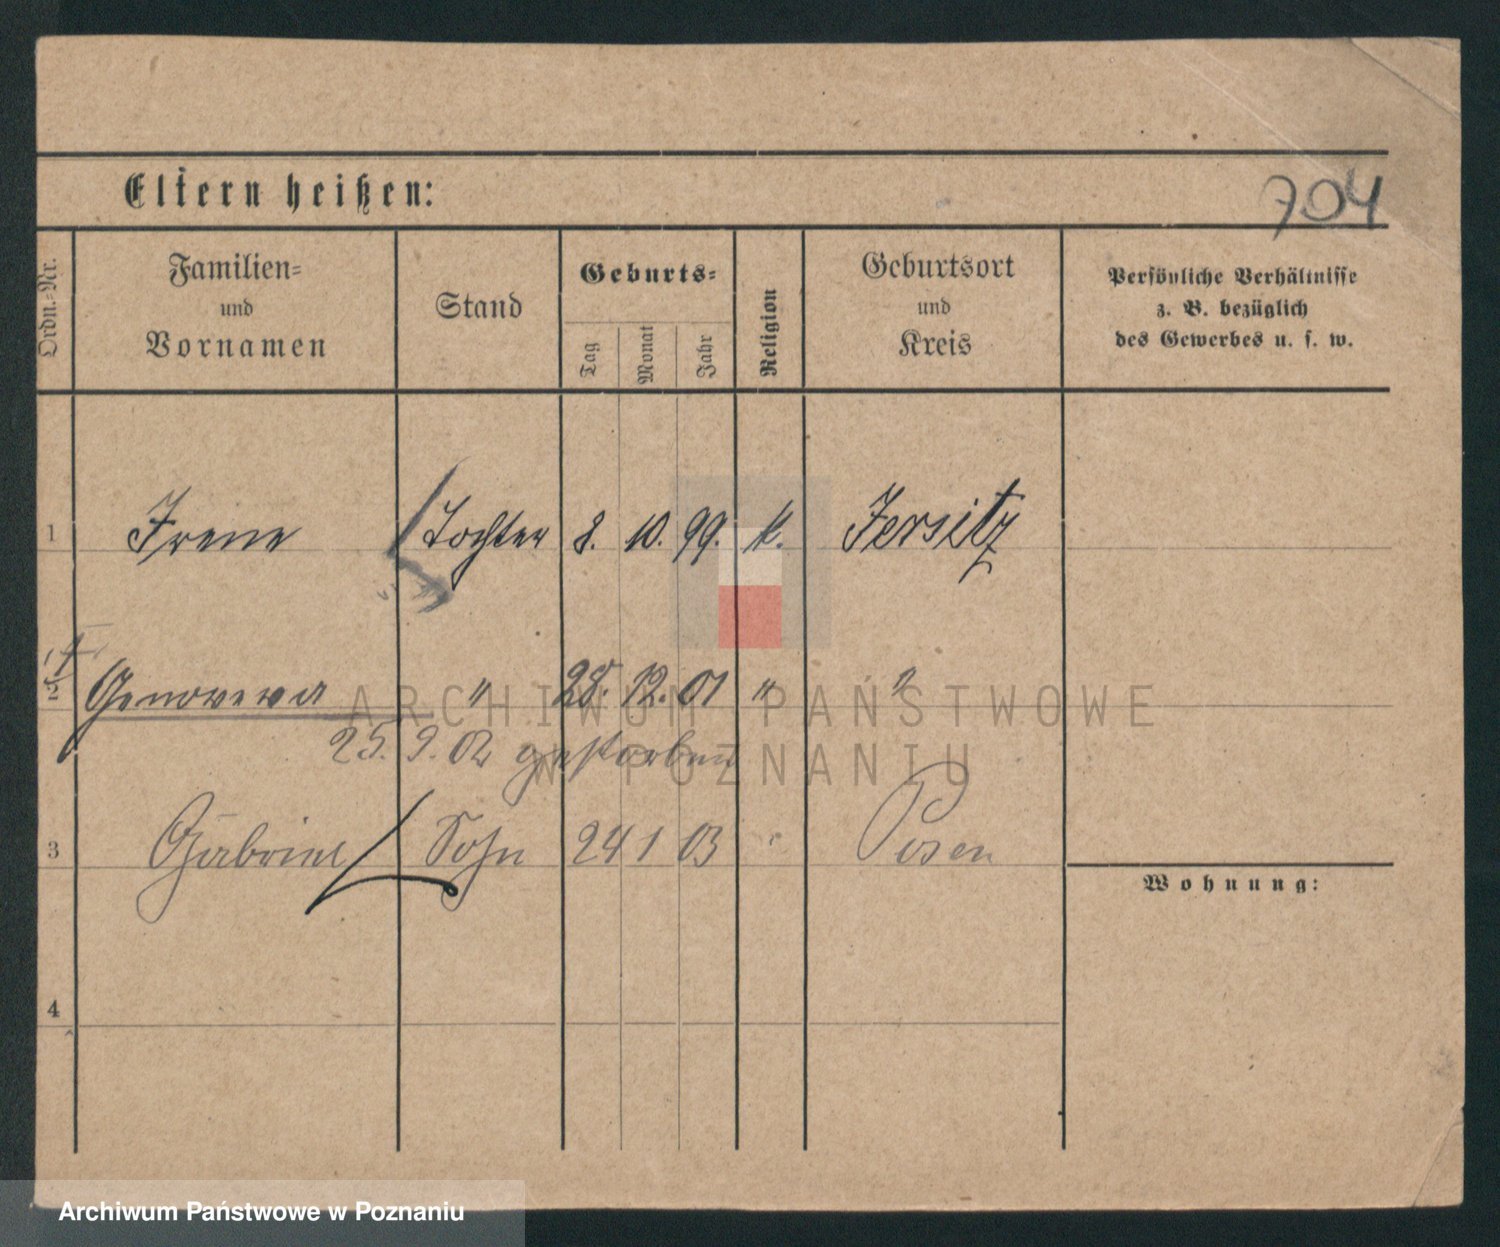 Eltern heißen:
704
Ordn.=Nr.
Familien=
und
Vornamen
Stand
Geburts=
Tag
Monat
Jahr
Religion
Geburtsort
und
Kreis
Persönliche Verhältnisse
z. B. bezüglich
des Gewerbes u. s. w.
1 Irene Tochter 8. 10. 99. k. Jersitz
2 Genovewa " 28. 12. 01 " "
25. 9. 02 gestorben
3 Gabriel Sohn 24 1 03 " Posen
Wohnung:
4
ARCHIWUM PAŃSTWOWE
W POZNANIU
Archiwum Państwowe w Poznaniu